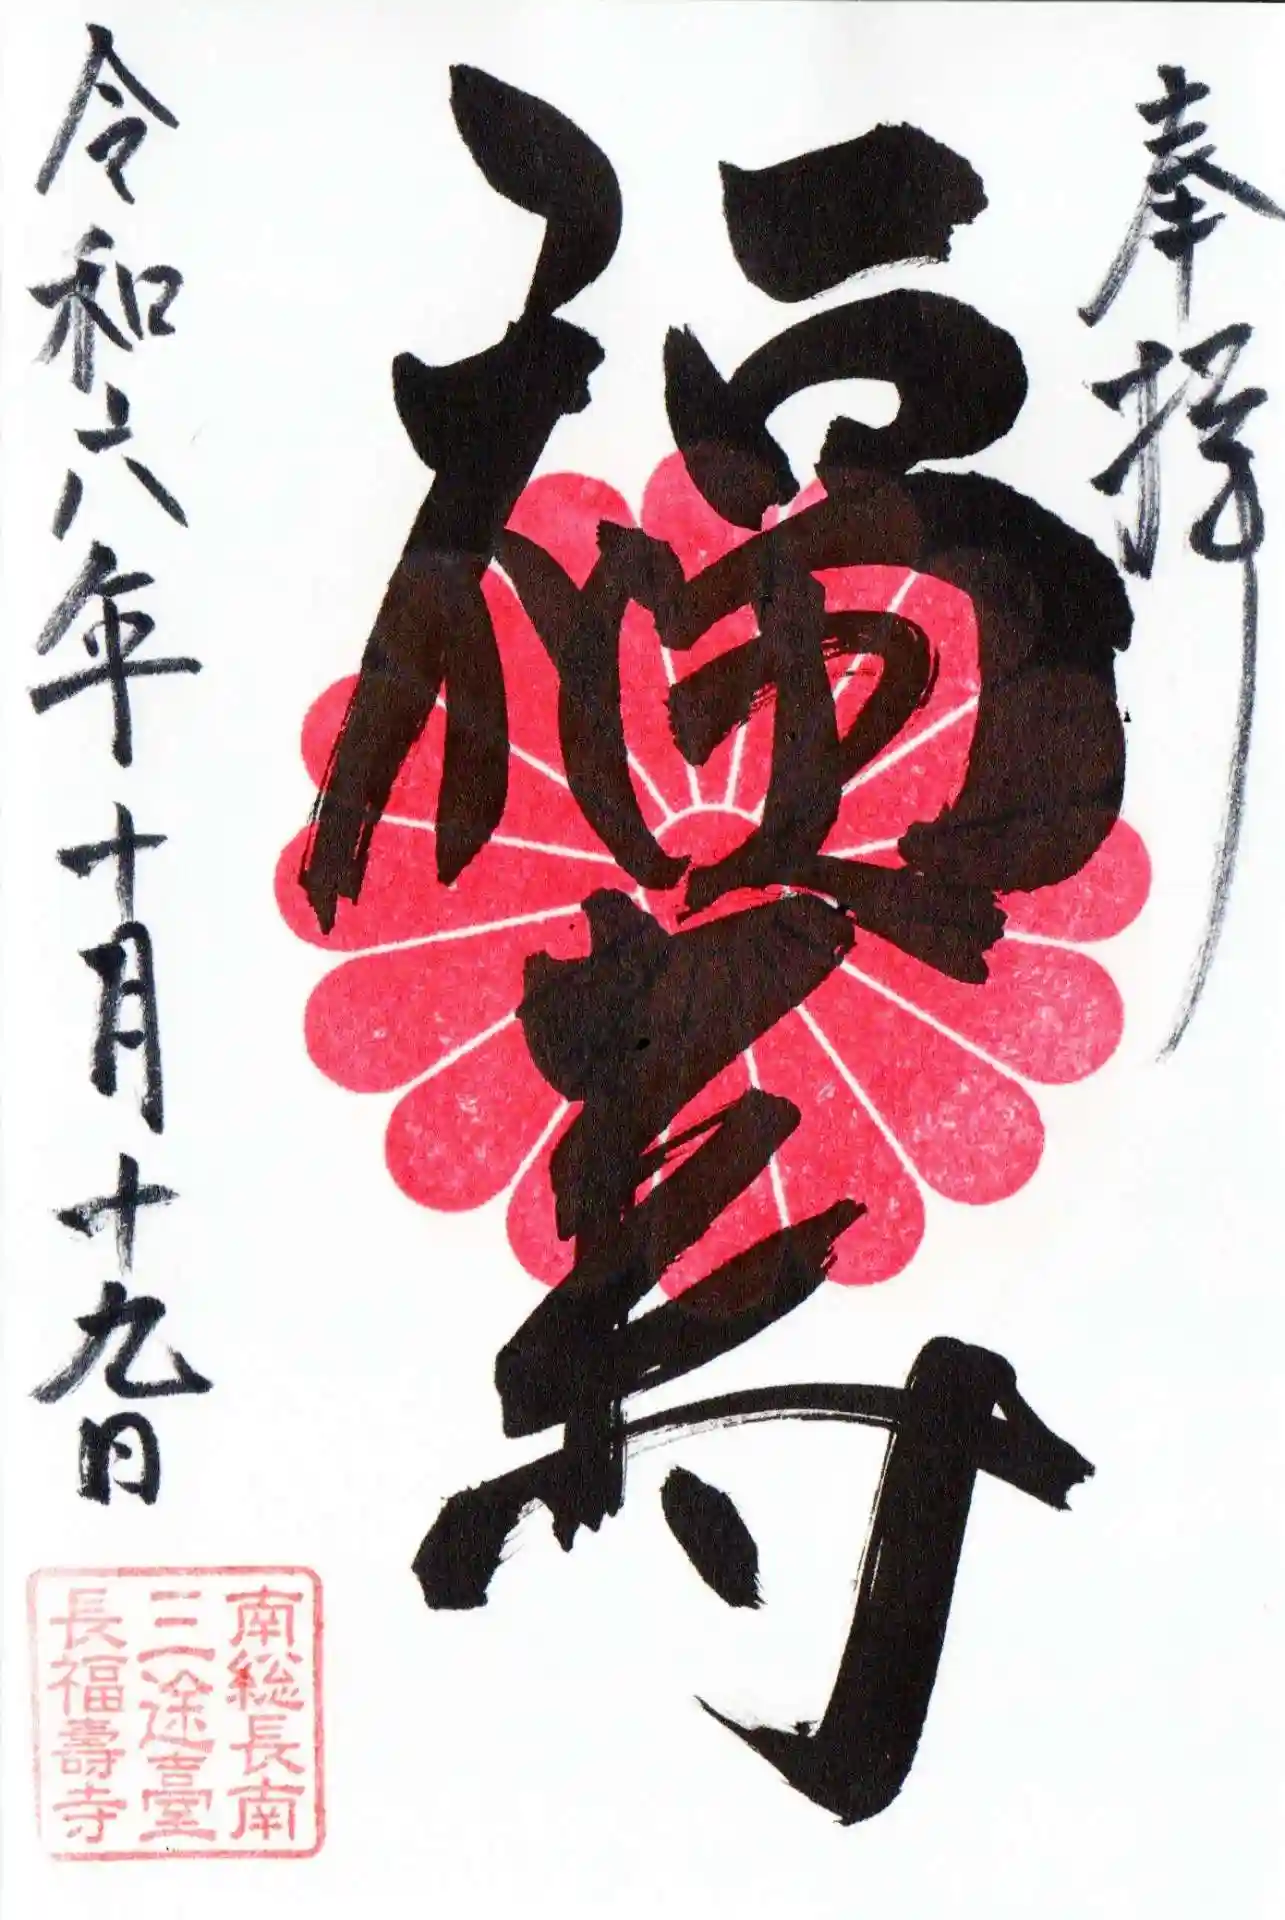 奉拝
福寿
令和六年十月十九日
南総長南
三途臺
長福壽寺